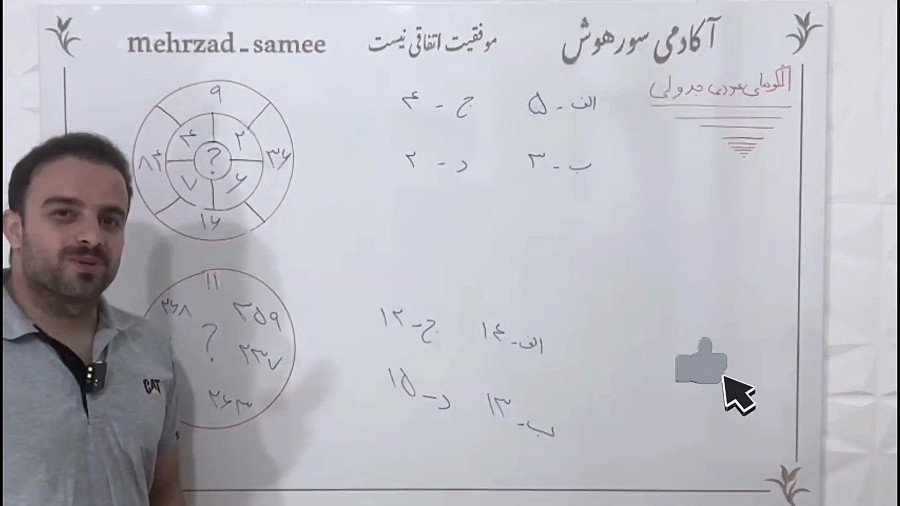 آکادمی سورهوش
موفقیت اتفاقی نیست
mehrzad_samee
الگوهای عددی جدولی
الف - ۵
ج - ۴
ب - ۳
د - ۲
۹
۴ ۲
۸۴ ? ۳۶
۷ ۶
۱۶
الف - ۱۴
ج - ۱۲
ب - ۱۳
د - ۱۵
۱۱
۲۶۸ ۳۵۹
? ۲۳۷
۲۶۳
CAT